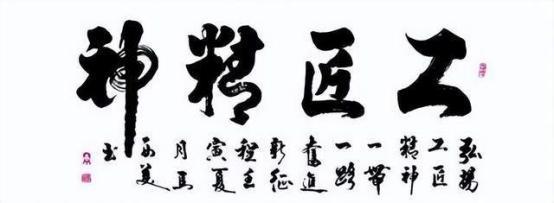 工匠精神
弘揚
工匠
精神
一帶
一路
奮進
新征
程壬
寅夏
月马
美
书